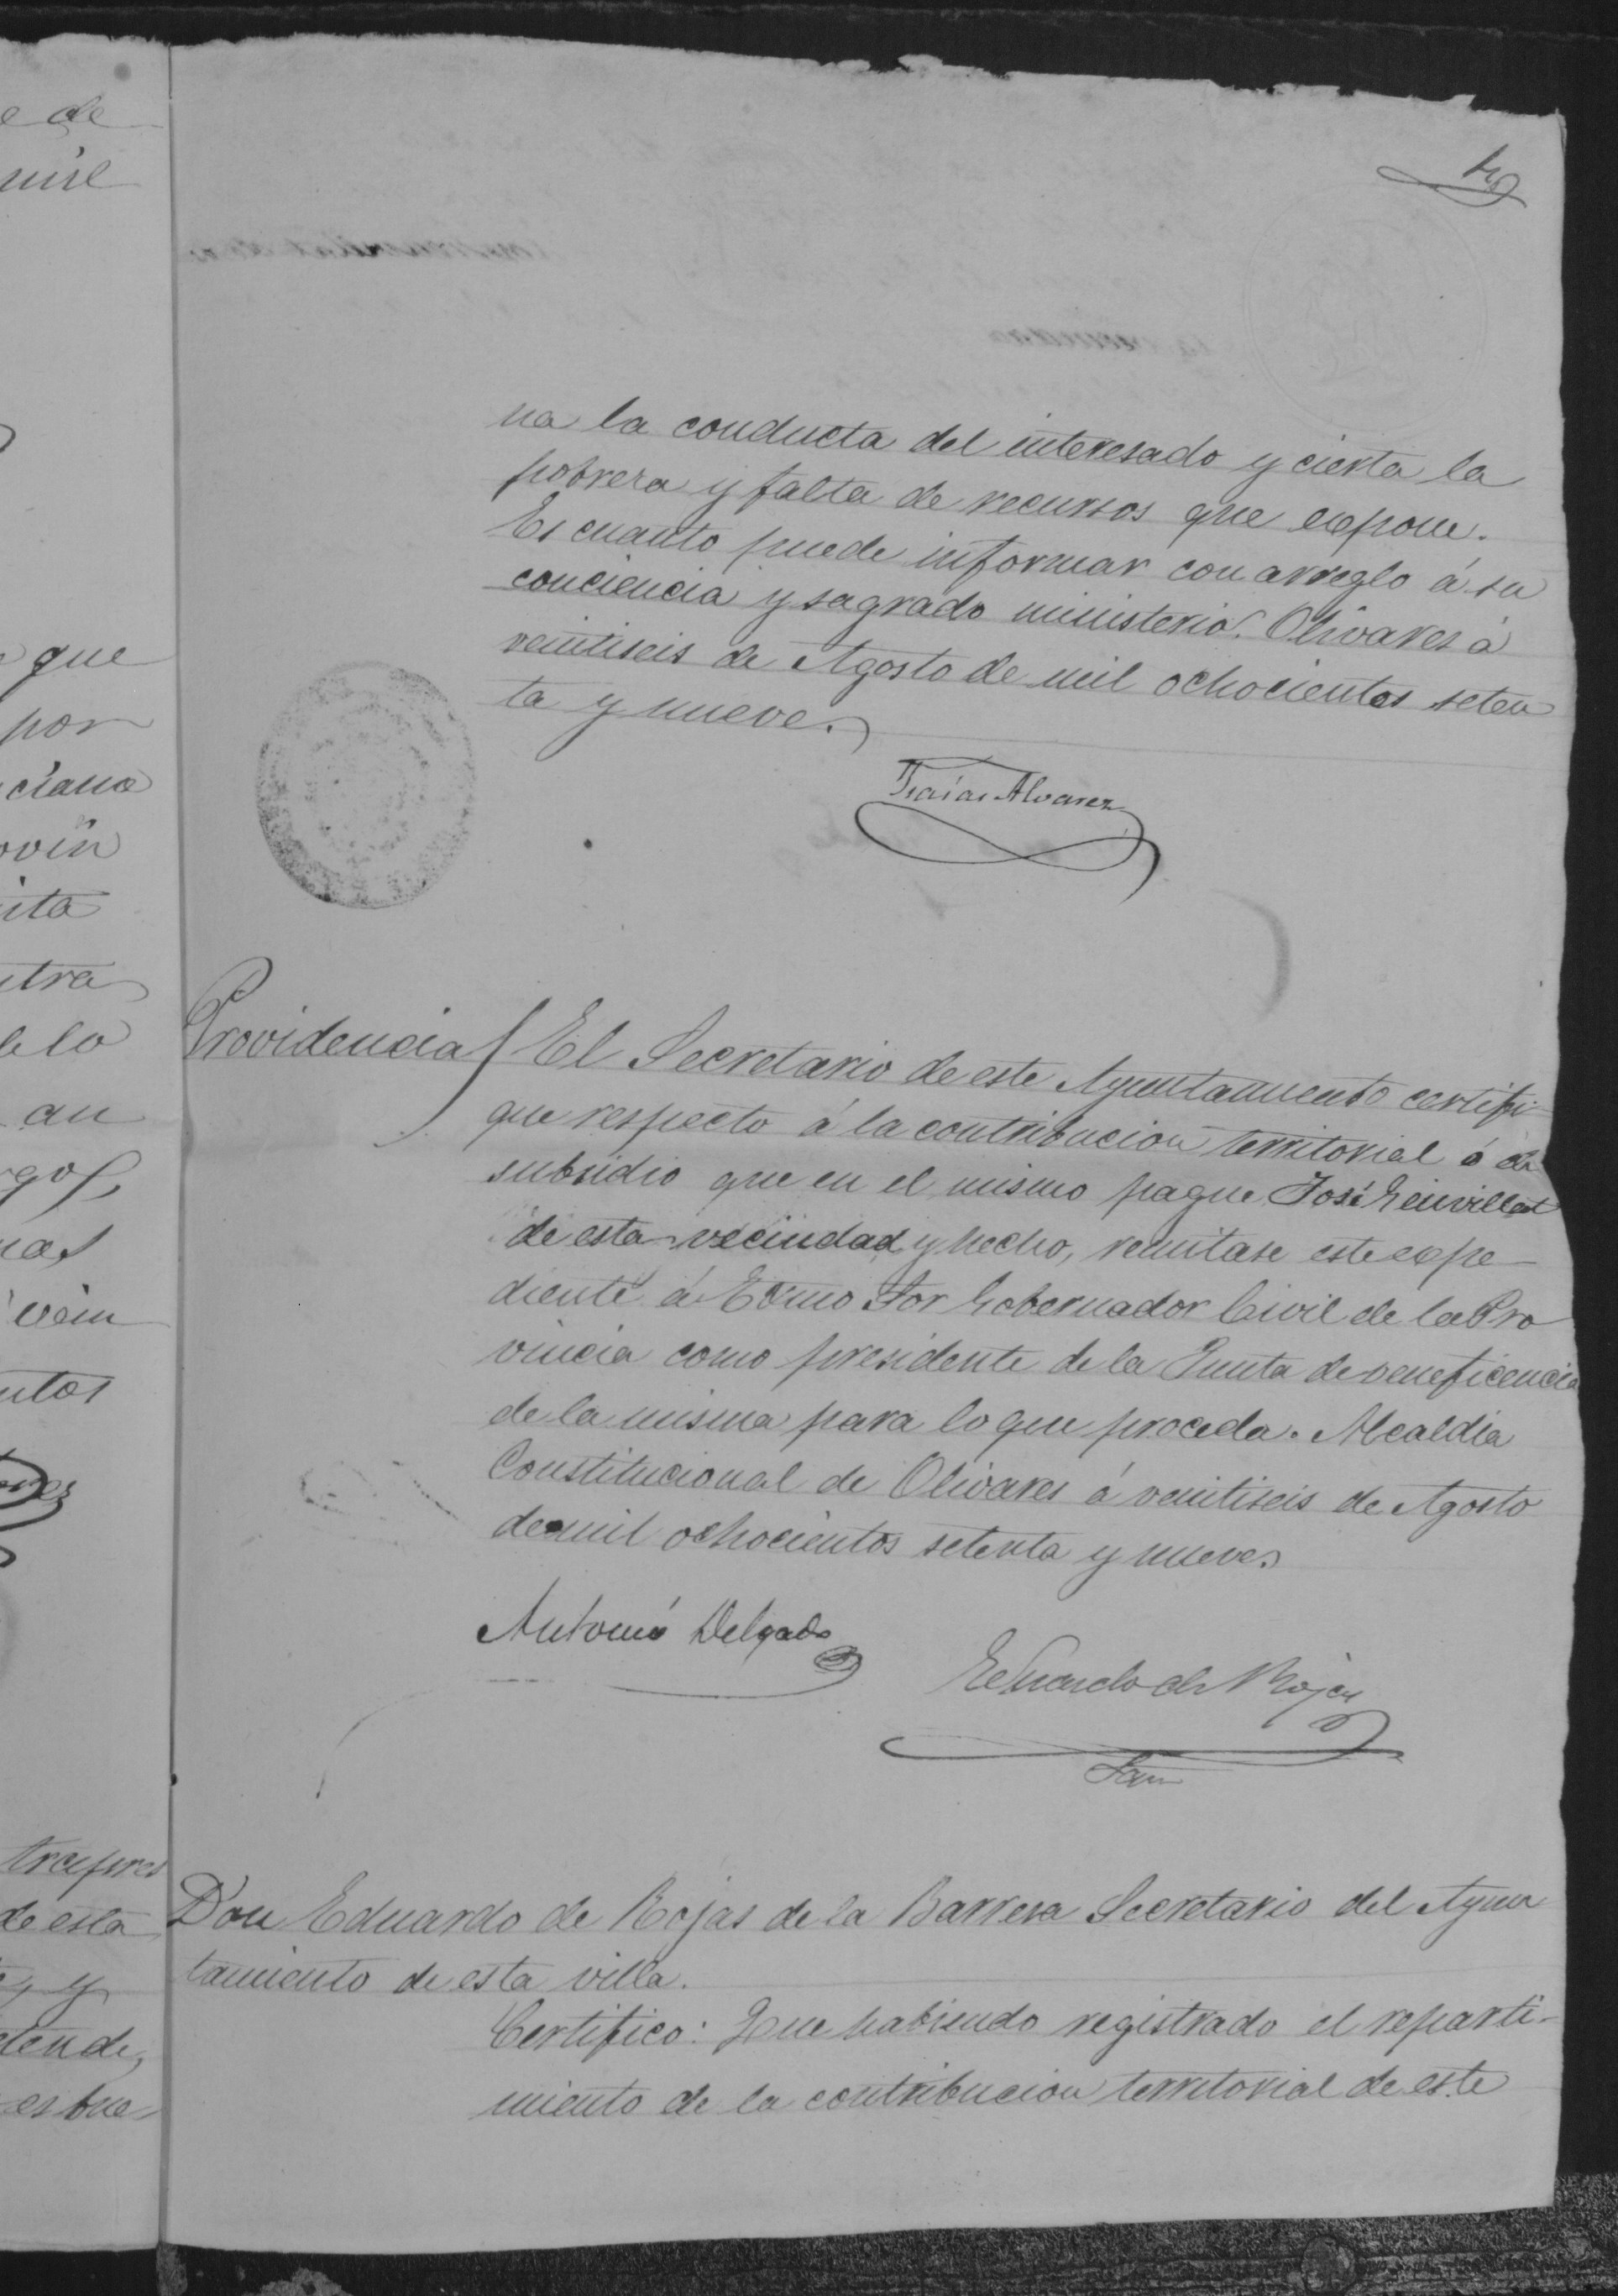 4
na la conducta del interesado y cierta la
pobreza y falta de recursos que expone.
Es cuanto puede informar con arreglo á su
conciencia y sagrado ministerio. Olivares á
veintiseis de Agosto de mil ochocientos seten
ta y nueve.
Isaías Alvarez
Providencia El Secretario de este Ayuntamiento certifi-
que respecto á la contribucion territorial ó de
subsidio que en el mismo pague José
de esta vecindad y hecho, remitase este expe
diente á Ecmo Sor Gobernador Civil de la Pro
vincia como presidente de la Junta de veneficencia
de la misma para lo que proceda. Alcaldia
Constitucional de Olivares á veintiseis de Agosto
de mil ochocientos setenta y nueve.
Antonio Delgado
Eduardo de Rojas
Don Eduardo de Rojas de la Barrera Secretario del Ayun
tamiento de esta villa.
Certifico: Que habiendo registrado el reparti-
miento de la contribucion territorial de este
e de
mil
que
por
ciana
ovin
ita
tra
an
tos
de esta
y
tende,
es bue